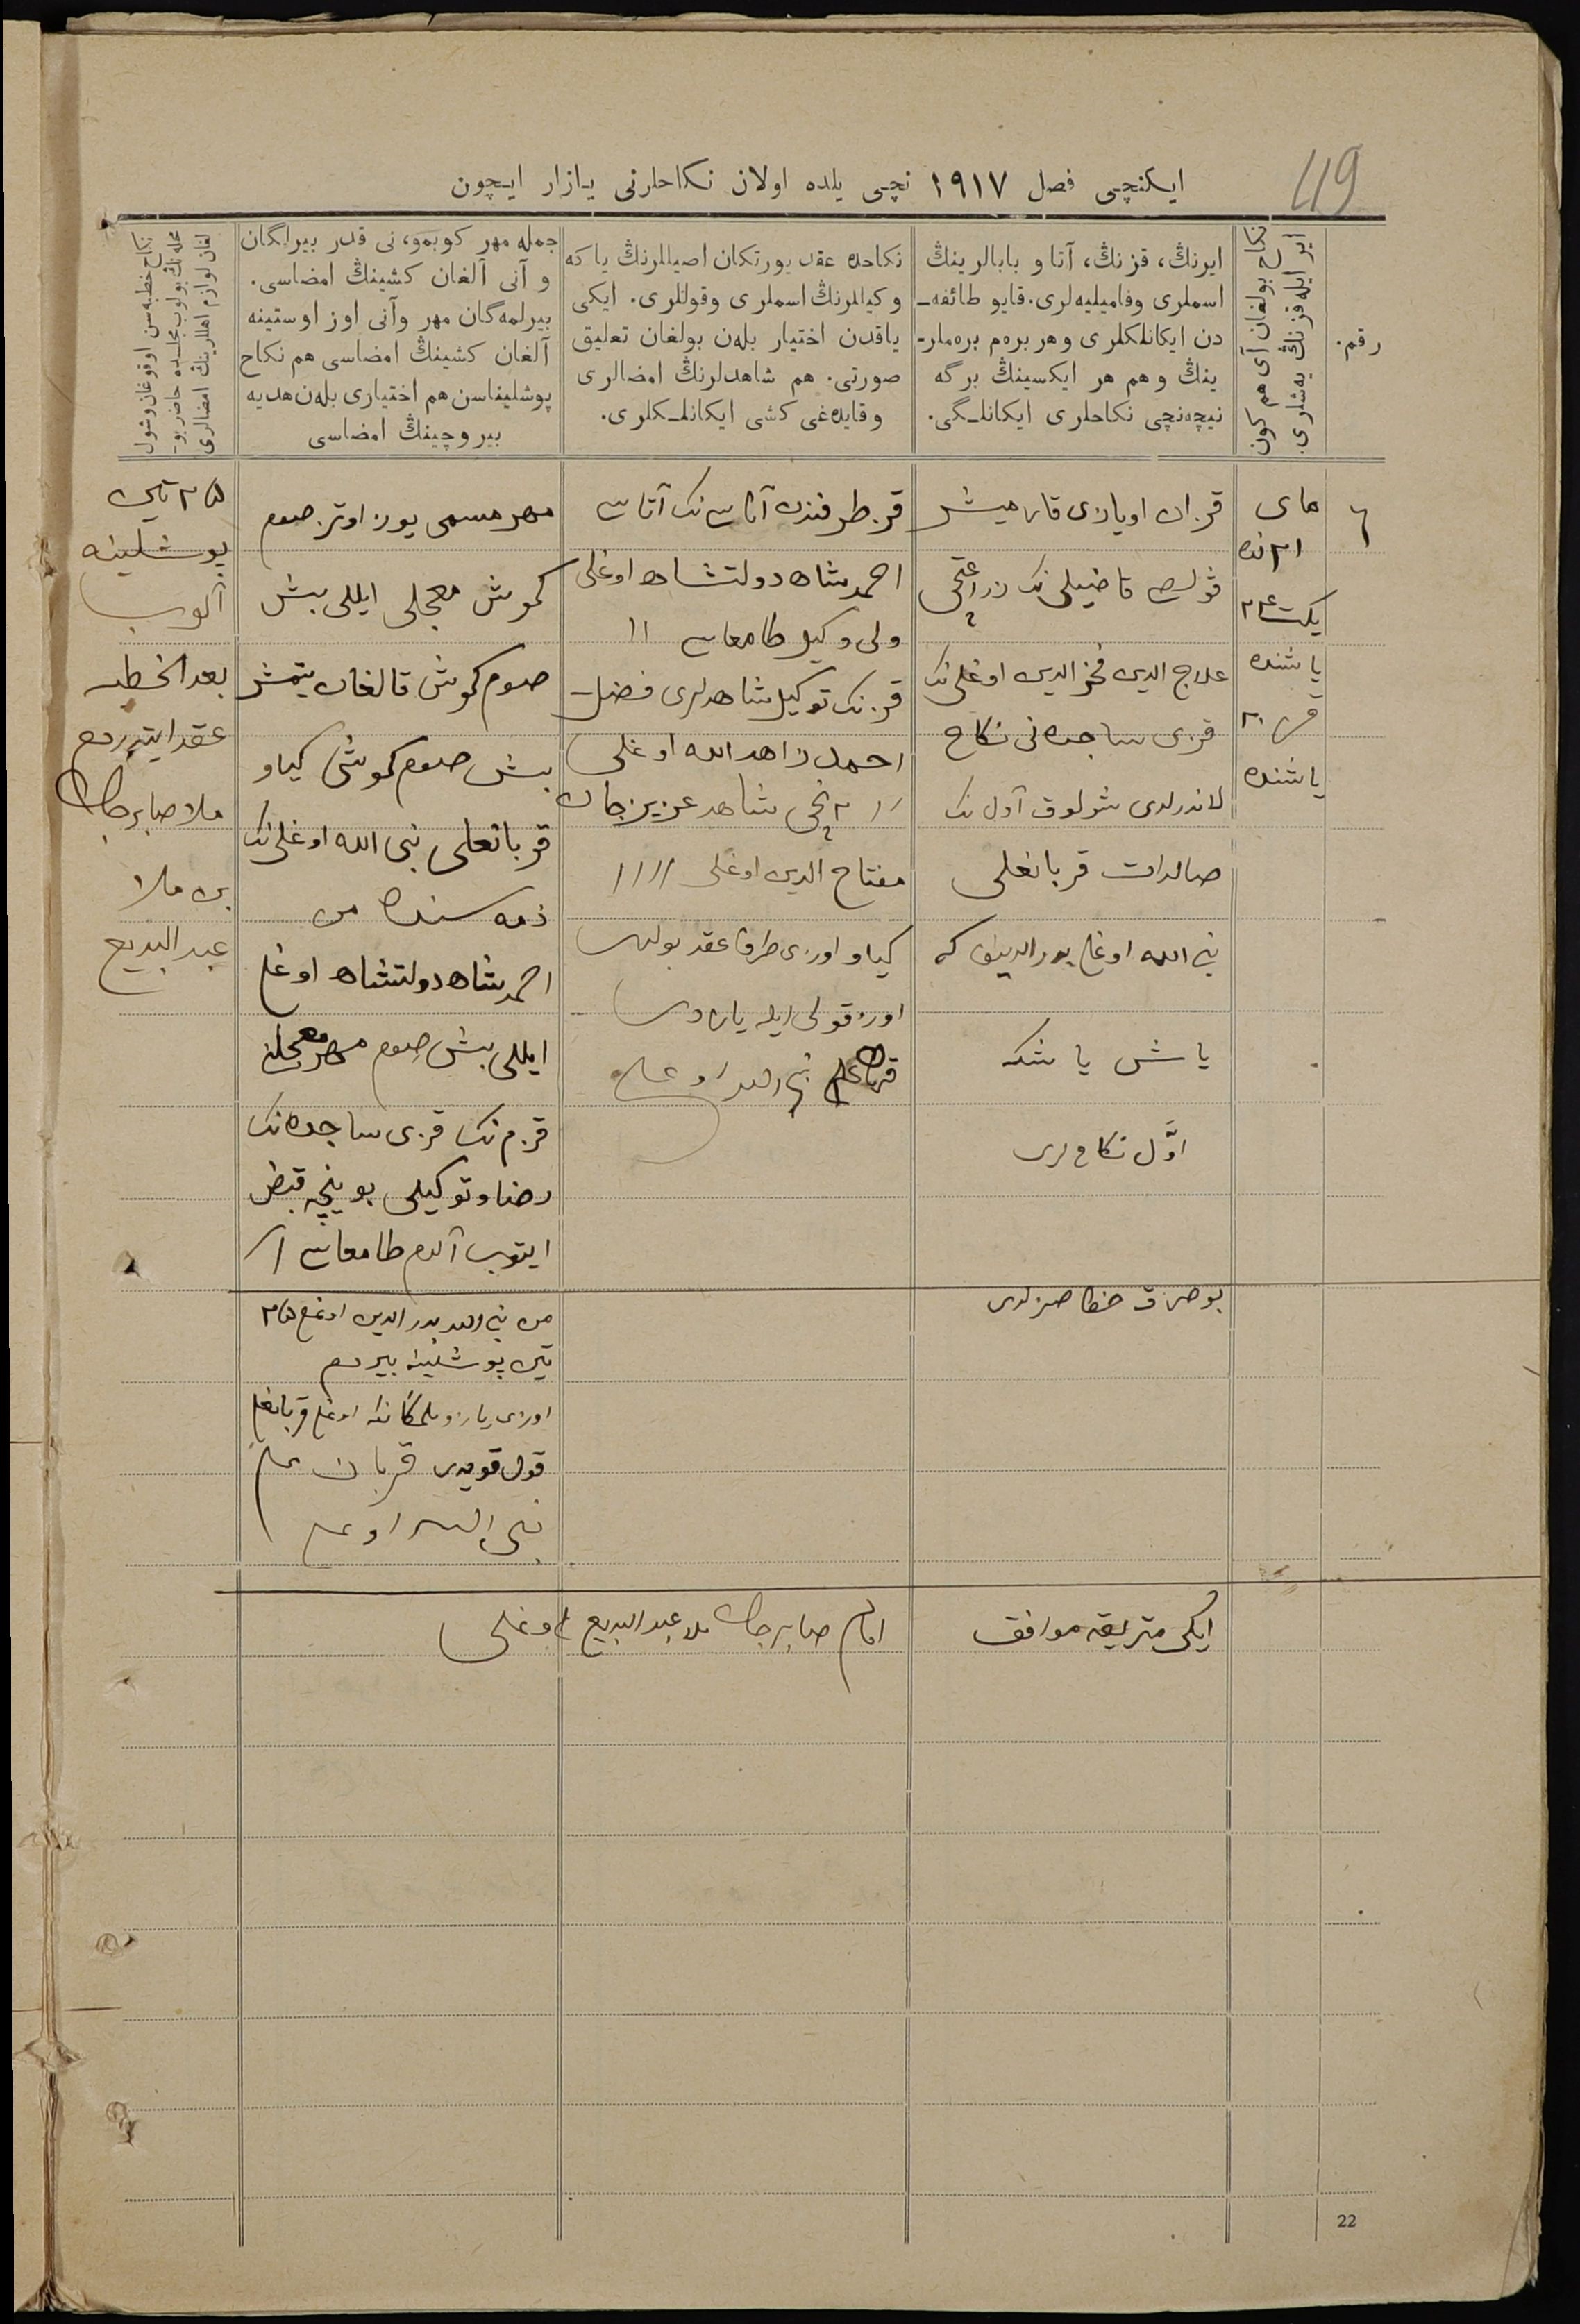 119
ایکنچی فصل ١٩١٧ نچی یلده اولان نکاحلرنی یازار ایچون
رقم.
نکاح بولغان آی هم کون
ایر ایله قزنڭ یه‌شلری.
ایرنڭ، قزنڭ، آتا و بابالرینڭ
اسملری وفامیلیه‌لری. قایو طائفه‌ـ
دن ایکانلکلری و هر بره‌م بره‌ملرـ
ینڭ و هم هر ایکسینڭ برگه
نیچه‌نچی نکاحلری ایکانلـگی.
نکاحده عقد یورتکان اصیاللرنڭ یاکه
و کیاللرنڭ اسملری وقوللری. ایکی
یاقدن اختیار بله‌ن بولغان تعلیق
صورتی. هم شاهدلرنڭ امضالری
و قایده‌غی کشی ایکانلـکلری.
جمله مهر کوبمو، نی قدر بیرلگان
و آنی آلغان کشینڭ امضاسی.
بیرلمه‌گان مهر وآنی اوز اوستینه
آلغان کشینڭ امضاسی هم نکاح
پوشلیناسن هم اختیاری بله‌ن هدیه
بیروچینڭ امضاسی
نکاح خطبه‌سن اوقوغان وشول
محله‌نڭ بولوب مجلسده حاضر بوـ
لغان لوازم اهللرینڭ امضالری
٦
مای
٢١ نده
یکت ٢٤
یاشنده
قز ٢٠
یاشنده
قزان اویازی قارمیش
ڤولص قاضیلی نک زراعتچی
علاج الدین فخرالدین اوغلی نک
قزی ساجده نی نکاح
لاندرلدی شولوق آول نک
صالدات قربانعلی
نبی الله اوغلی بدرالدینوف که
یاش یاشکه
اوّل نکاح لری
قز طرفندن آتاسی نک آتاسی
احمدشاه دولتشاه اوغلی
ولی وکیل طامغاسی II
قزنک توکیل شاهدلری فضل‌ـ
احمد زاهدالله اوغلی
// ٢ نچی شاهد عزیزجان
مفتاح الدین اوغلی ////
کیاو اوزی طرفا عقد بولوب
اوز قولی ایله یازدی
قربانعلی نبی الله اوغلی
مهر مسمی یوز اوتز صوم
کموش معجلی ایللی بش
صوم کموش قالغان یتمش
بش صوم کموشی کیاو
قربانعلی نبی الله اوغلی نک
ذمه سنده من
احمدشاه دولتشاه اوغلی
ایللی بش صوم مهر معجلن
قزم نک قزی ساجده نک
رضا و توکیلی بوینچه قبض
ایتوب آلدم طامغاسی //
٢٥ تین
پوشلینه
آلوب
بعد الخطبه
عقد ایتدردم
ملا صابرجان
بن ملا
عبد البدیع
بو صزق خطا صزلدی
من نبی الله بدرالدین اوغلی ٢٥
تین پوشلینه بیردم
اوزی یازو بلمگانکه اوغلی قربانعلی
قول قویدی قربان علی
نبی الله اوغلی
ایکی متریقه موافق
امام صابرجان ملا عبد البدیع اوغلی
22